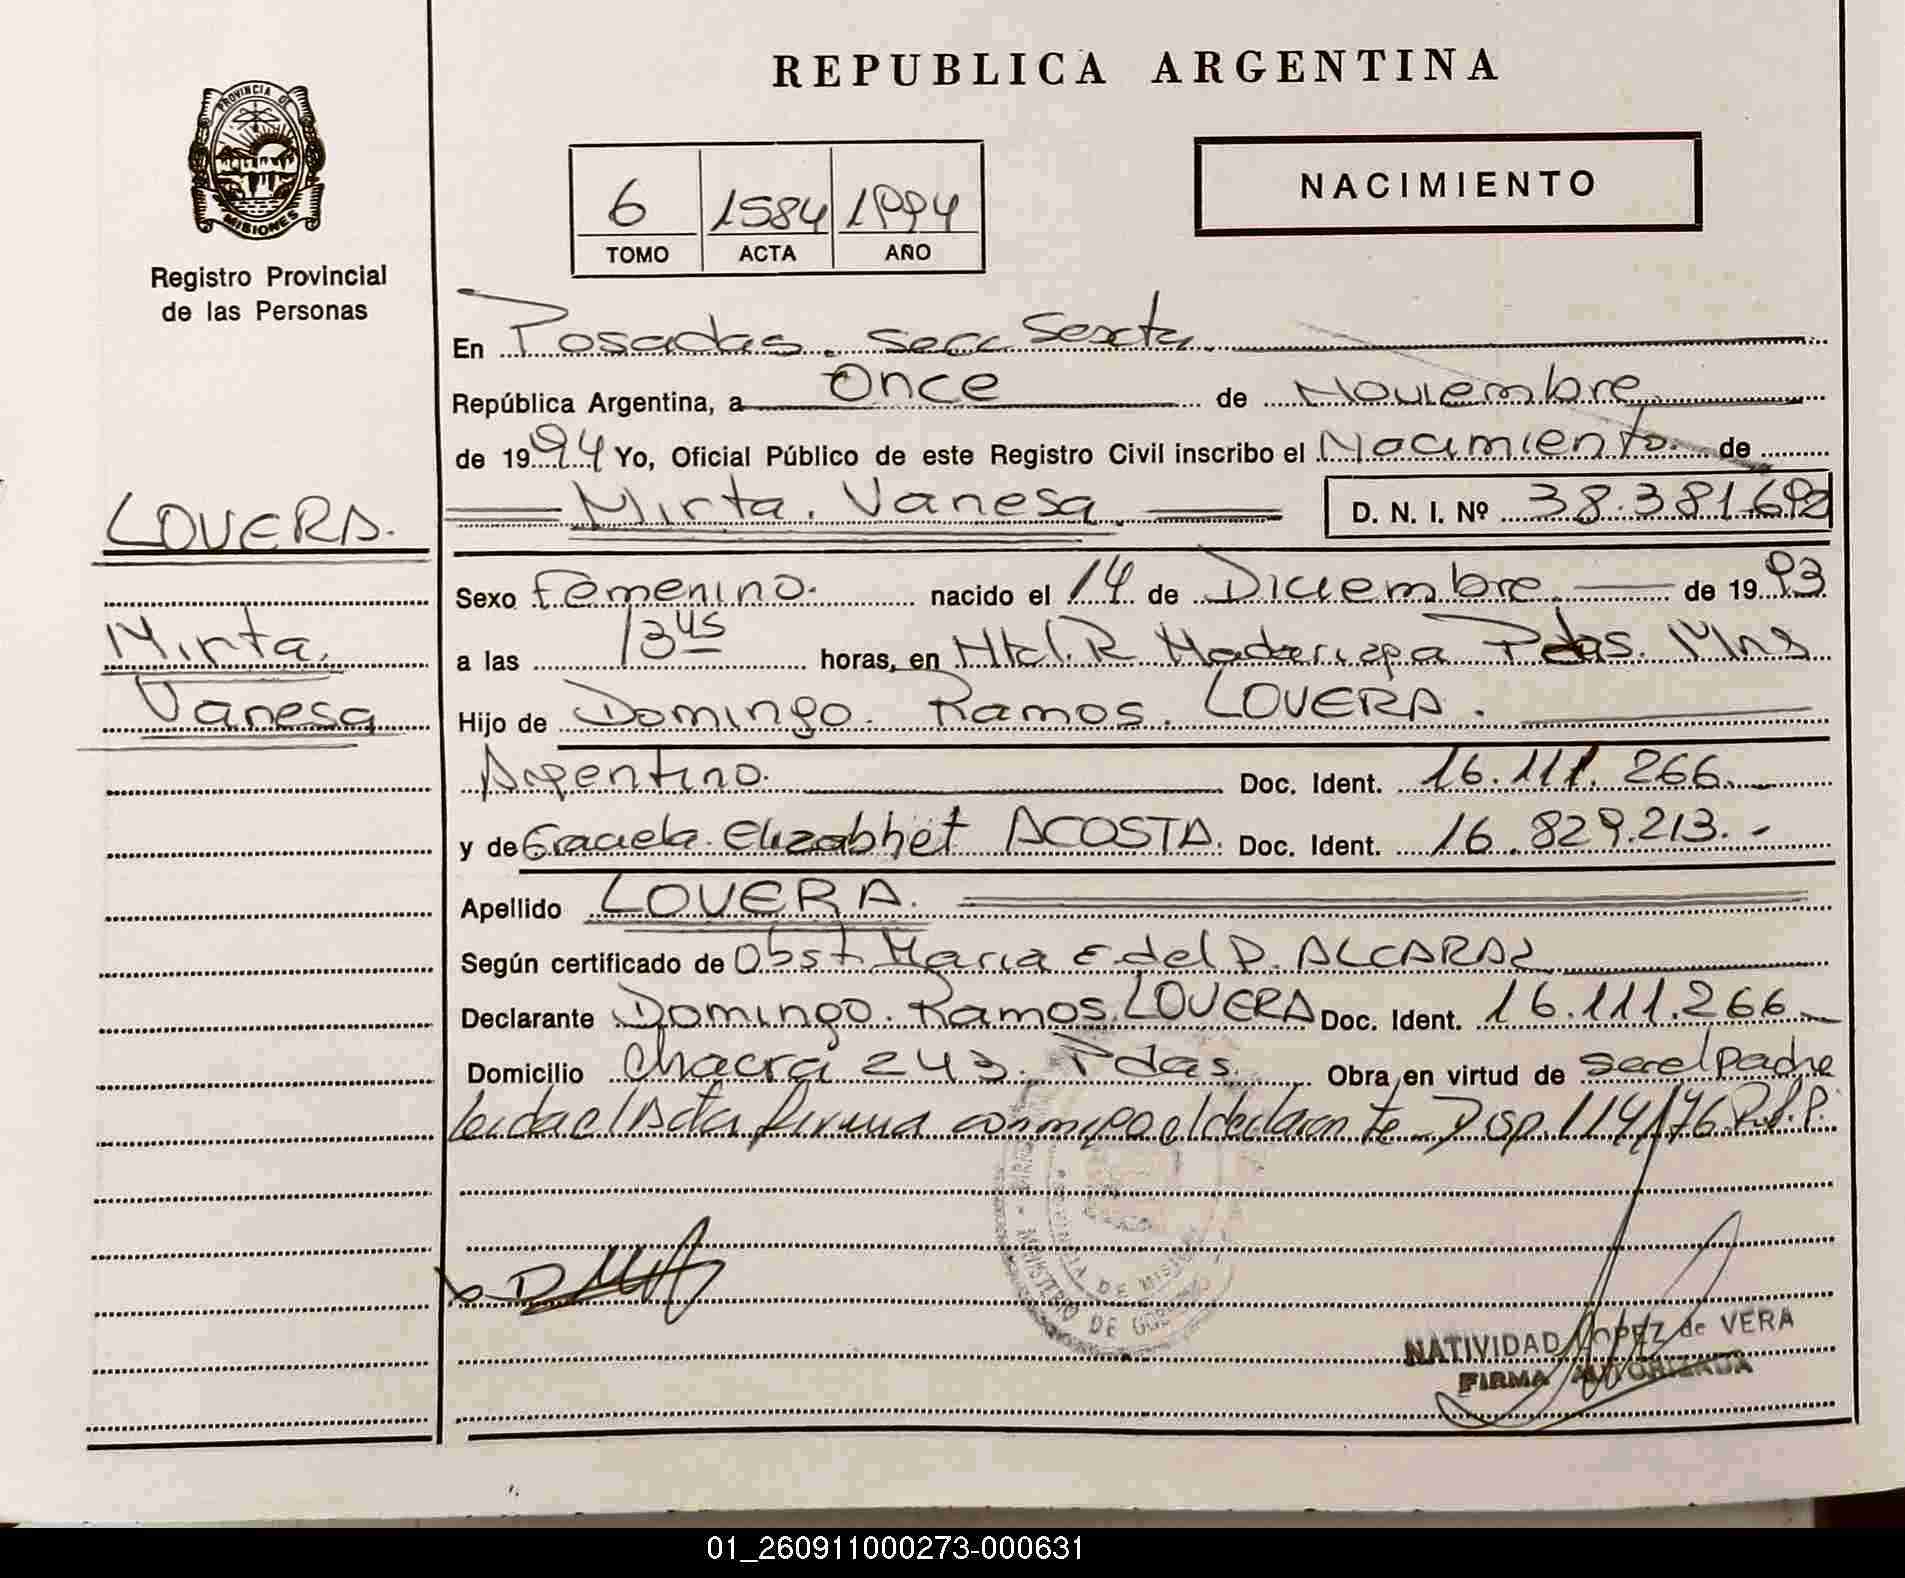 REPUBLICA ARGENTINA
PROVINCIA DE
MISIONES
Registro Provincial
de las Personas
6 1584 1994
TOMO ACTA AÑO
NACIMIENTO
En Posadas. secc Sexta.
República Argentina, a Once de Noviembre
de 1994 Yo, Oficial Público de este Registro Civil inscribo el Nacimiento. de
Mirta. Vanesa D. N. I. Nº 38.381.692
LOVERA.
Mirta.
Vanesa
Sexo Femenino. nacido el 14 de Diciembre. de 1993
a las 13 45 horas, en Htal. R Madariaga Pdas. Mns
Hijo de Domingo. Ramos. LOVERA.
Argentino. Doc. Ident. 16.111.266.
y de Graciela. Elizabhet ACOSTA. Doc. Ident. 16.829.213.-
Apellido LOVERA.
Según certificado de Obst. Maria E. del P. ALCARAZ
Declarante Domingo. Ramos. LOVERA Doc. Ident. 16.111.266
Domicilio Chacra 243. Pdas. Obra en virtud de ser el padre
leida el Acta firma conmigo el declarante. Disp. 114/76 R.P.P.
MINISTERIO DE GOBIERNO
PROVINCIA DE MISIONES
NATIVIDAD LOPEZ de VERA
FIRMA AUTORIZADA
01_260911000273-000631